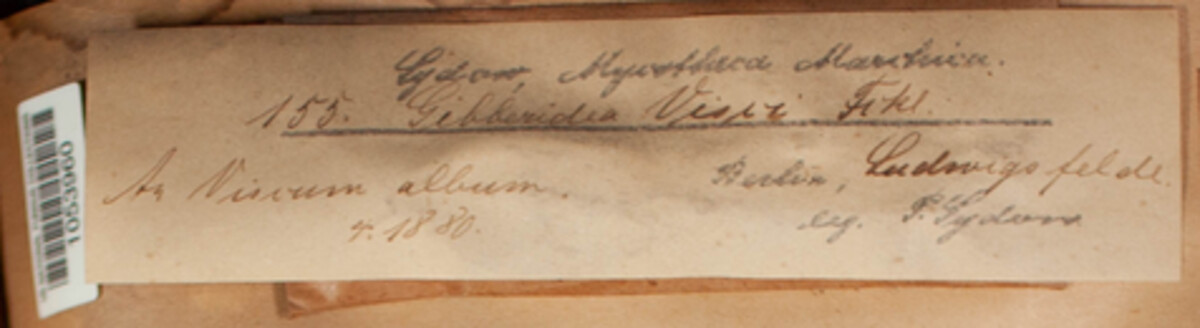 Sydow, Mycotheca Marchica.
155. Gibberidea Visci Fckl.
An Viscum album.
Berlin, Ludwigsfelde.
4. 1880.
leg. P. Sydow
1053960